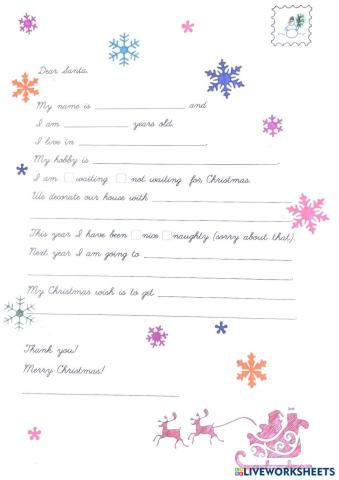 Dear Santa,
My name is ____________________ and
I am ______________ years old.
I live in ______________________________,
My hobby is ______________________________.
I am □ waiting □ not waiting for Christmas.
We decorate our house with ______________________________
____________________________________________________________
This year I have been □ nice □ naughty (sorry about that).
Next year I am going to ______________________________
____________________________________________________________
My Christmas wish is to get ______________________________
____________________________________________________________
Thank you!
Merry Christmas!
______________________________
LIVEWORKSHEETS